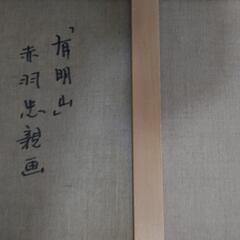 「有明山」
赤羽忠親画